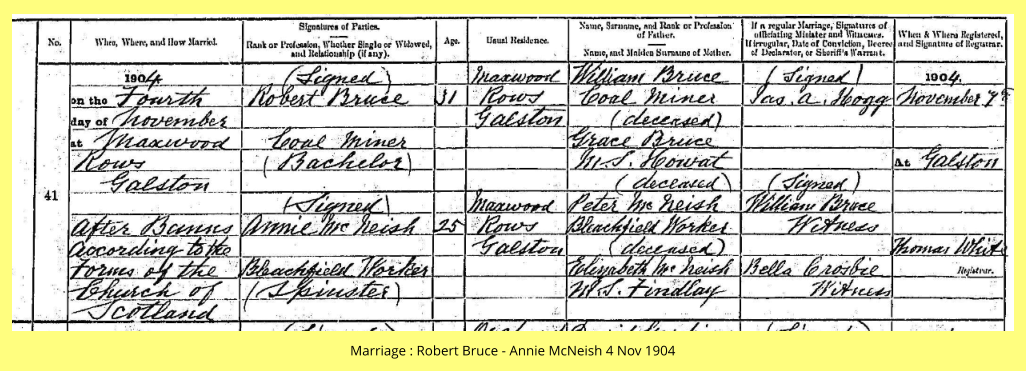 No.
When, Where, and How Married.
Signatures of Parties.
Rank or Profession, Whether Single or Widowed,
and Relationship (if any).
Age.
Usual Residence.
Name, Surname, and Rank or Profession
of Father.
Name, and Maiden Surname of Mother.
If a regular Marriage, Signatures of
officiating Minister and Witnesses.
If irregular, Date of Conviction, Decree
of Declarator, or Sheriff's Warrant.
When & Where Registered,
and Signature of Registrar.
41
1904
on the Fourth
day of November
at Maxwood
Rows
Galston
After Banns
According to the
Forms of the
Church of
Scotland
(Signed)
Robert Bruce
Coal Miner
(Bachelor)
(Signed)
Annie McNeish
Bleachfield Worker
(Spinster)
31
25
Maxwood
Rows
Galston
Maxwood
Rows
Galston
William Bruce
Coal Miner
(deceased)
Grace Bruce
M.S. Howat
(deceased)
Peter McNeish
Bleachfield Worker
(deceased)
Elizabeth McNeish
M.S. Findlay
(Signed)
Jas. A. Hogg
(Signed)
William Bruce
Witness
Bella Crosbie
Witness
1904,
November 7th
At Galston
Thomas White
Registrar.
(Signed)
(Signed)
Marriage : Robert Bruce - Annie McNeish 4 Nov 1904